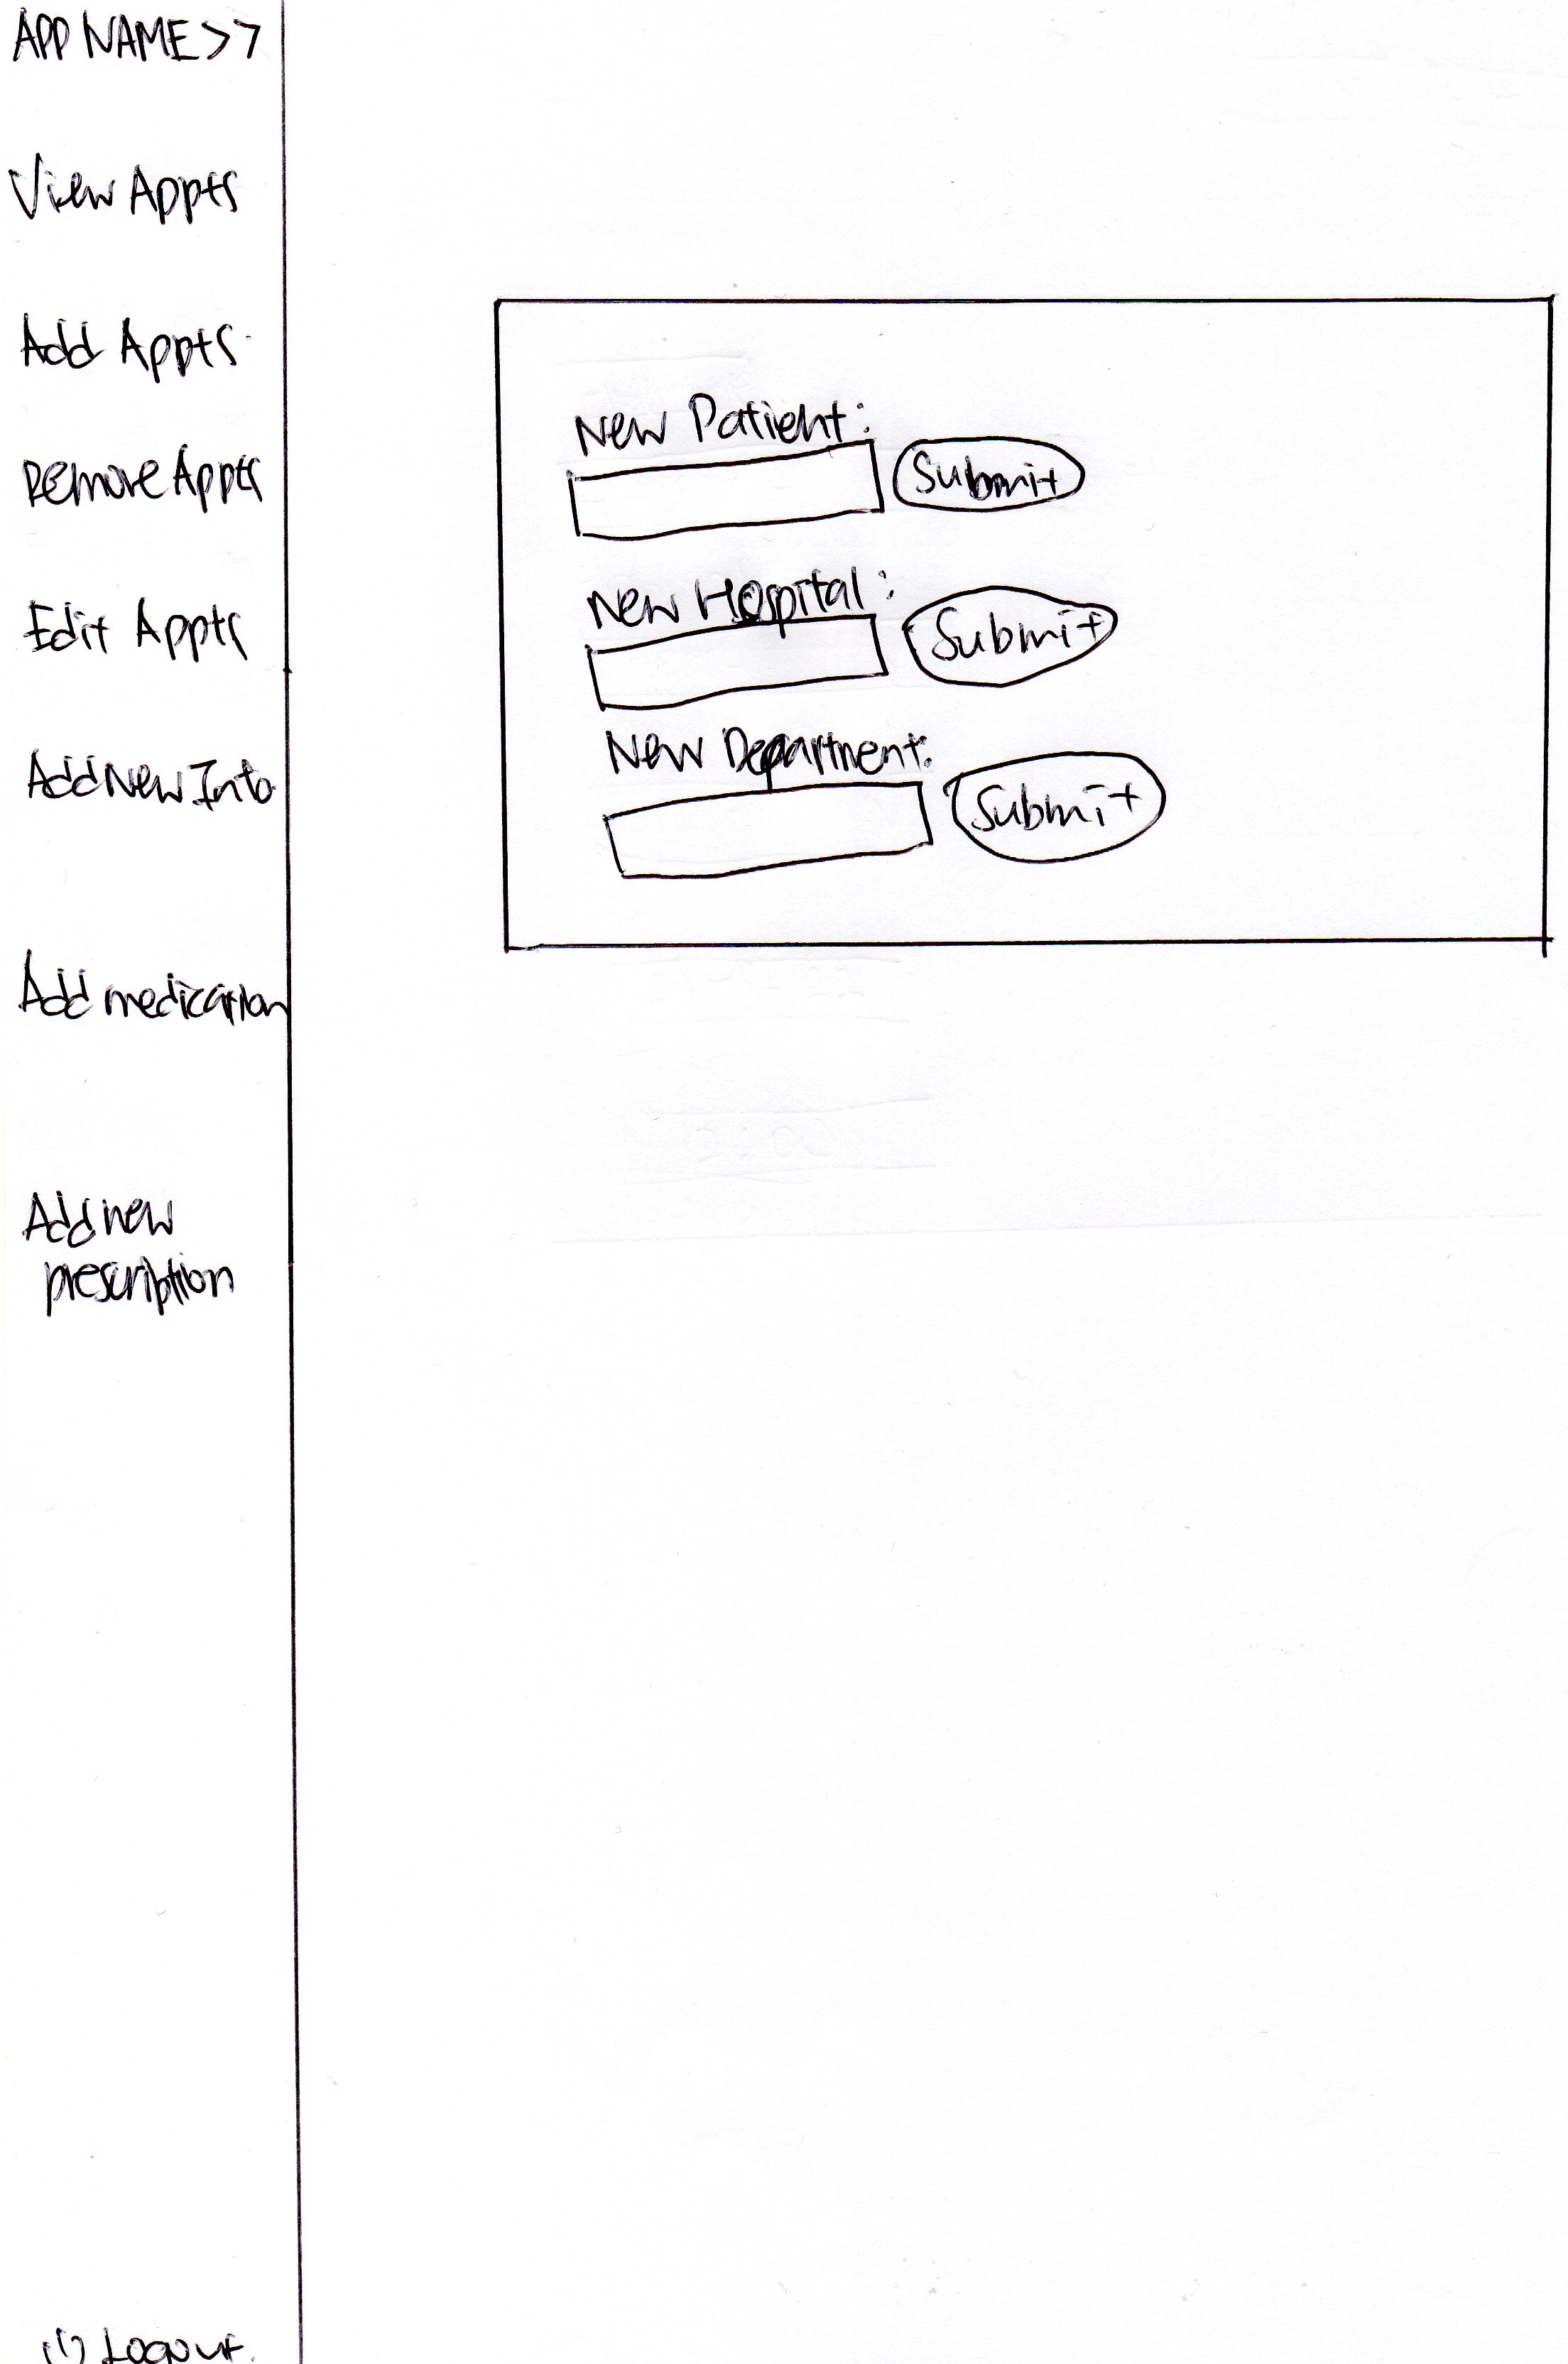 APP NAME >>
View Appts
Add Appts
Remove Appts
Edit Appts
Add New Info
Add medication
Add new
prescription
Logout
New Patient:
Submit
New Hospital:
Submit
New Department:
Submit